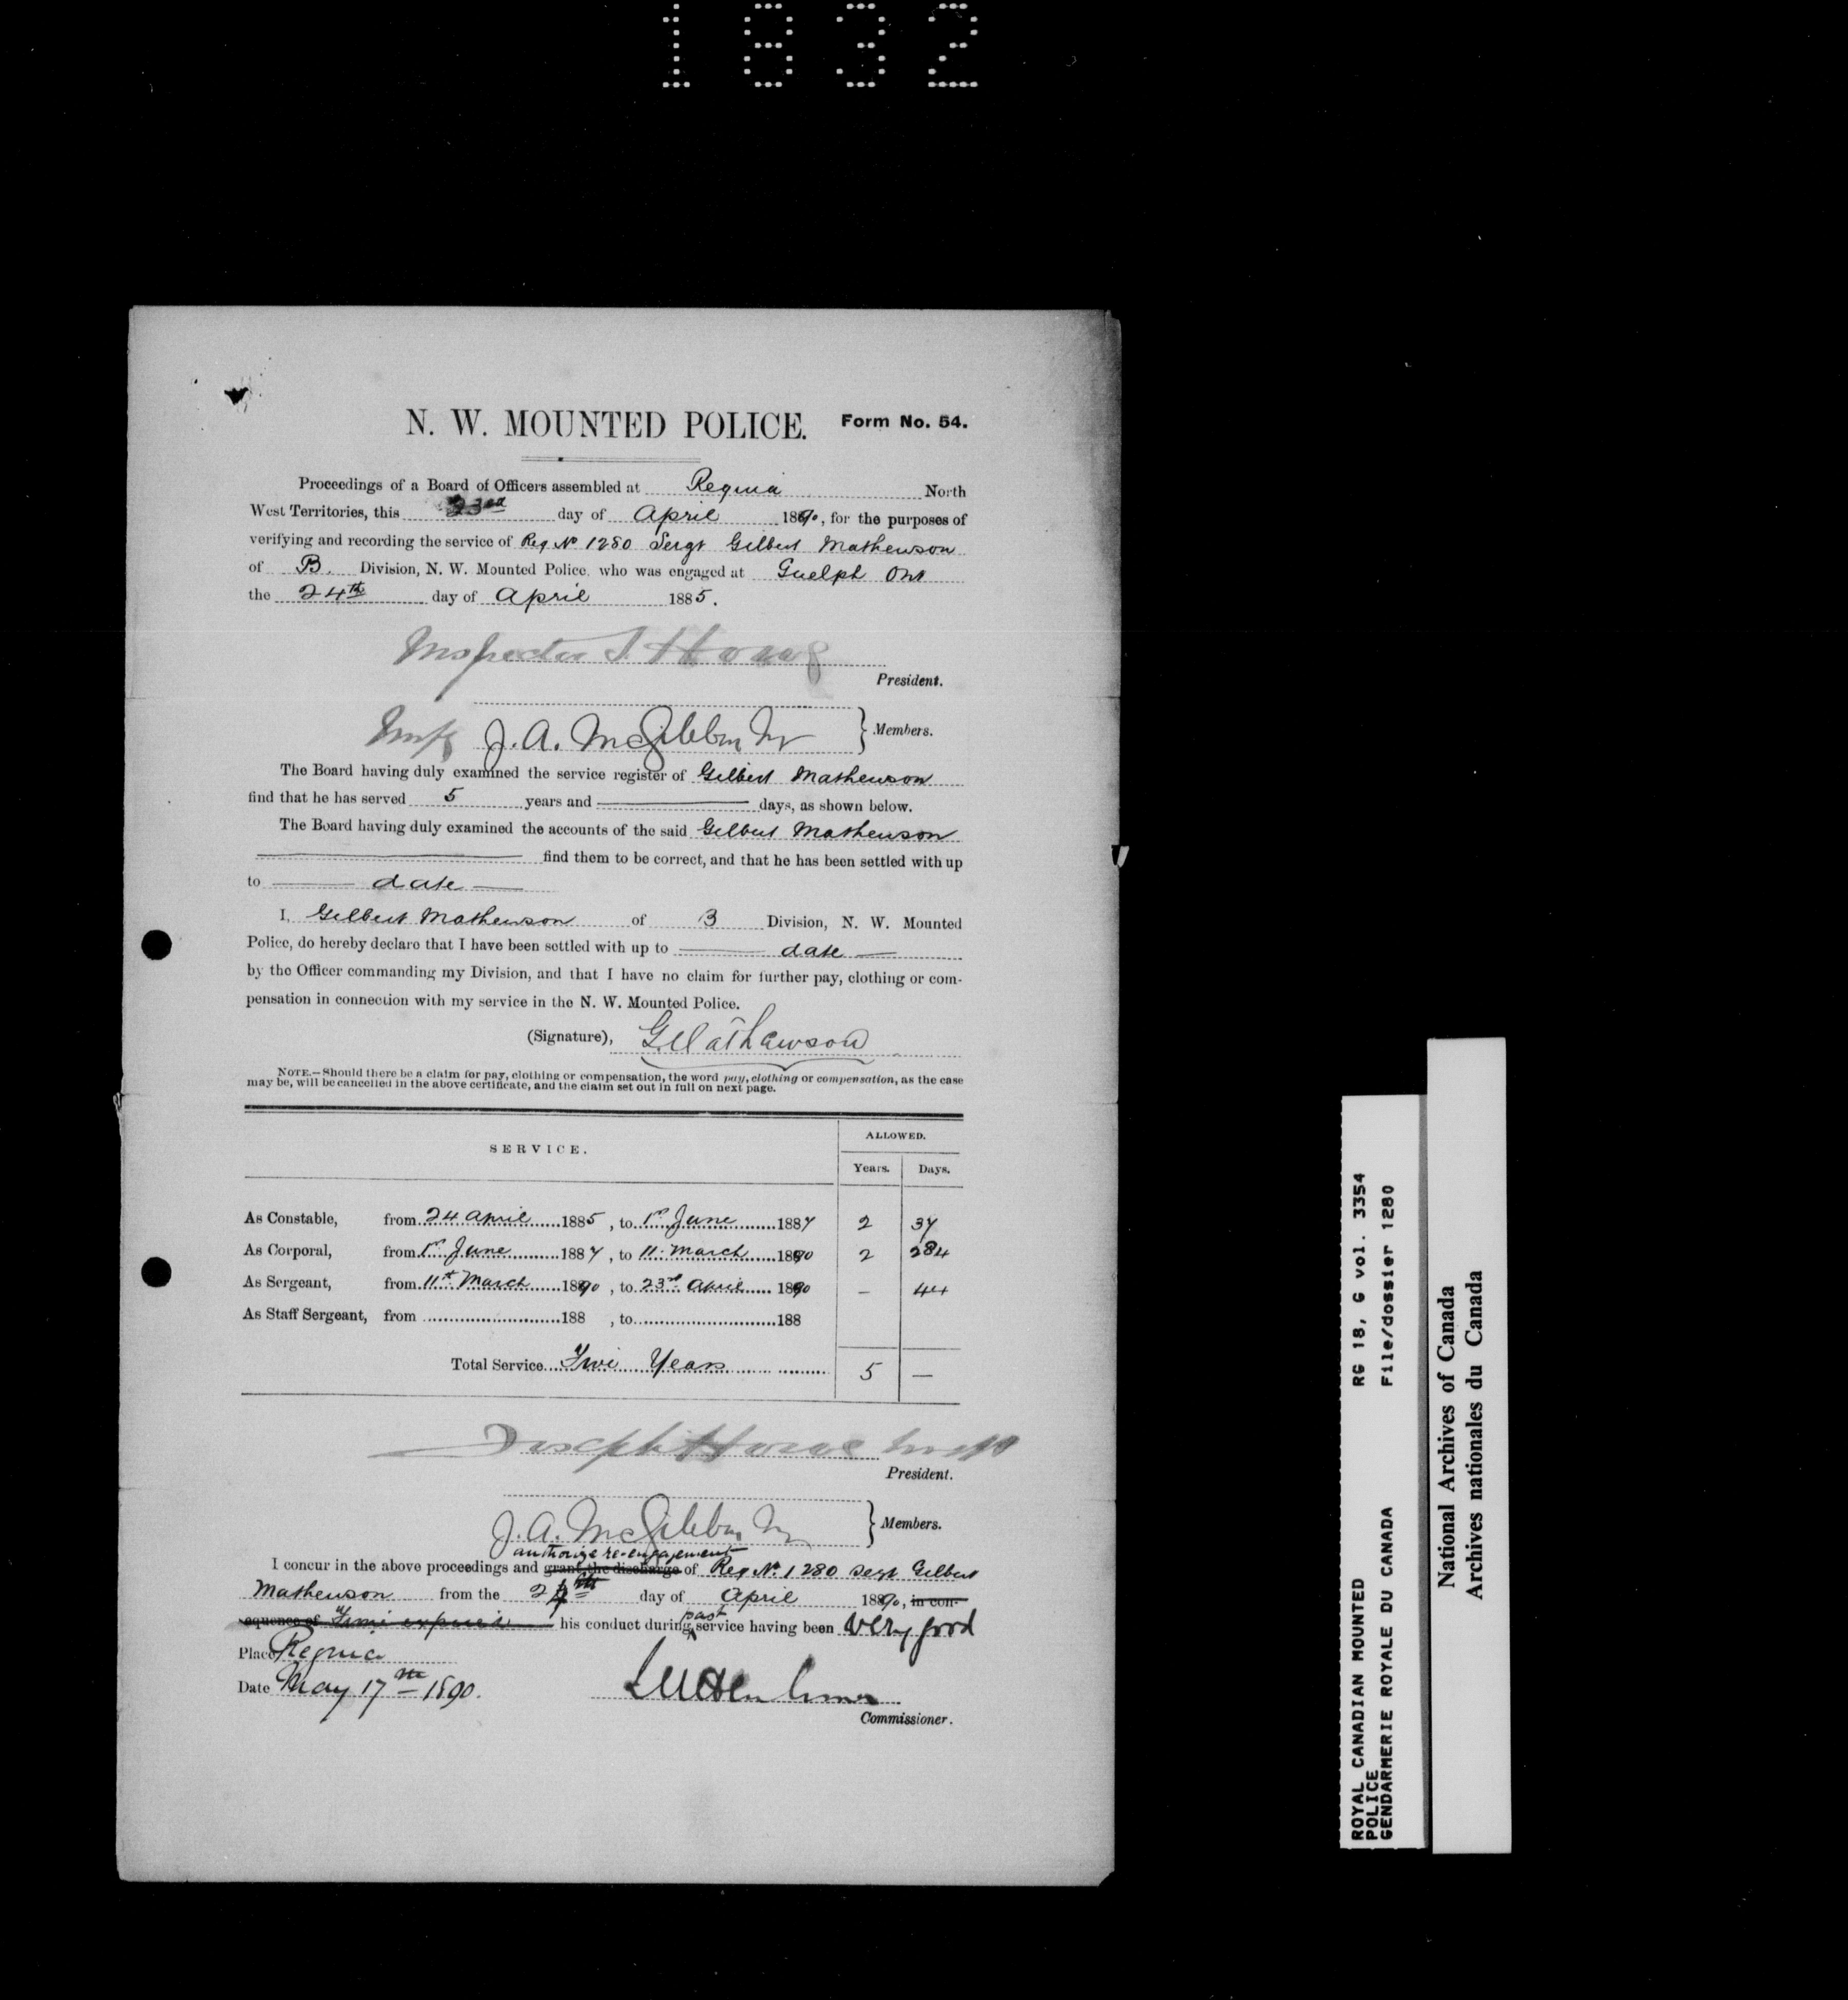 1832
N. W. MOUNTED POLICE. Form No. 54.
Proceedings of a Board of Officers assembled at Regina North
West Territories, this 23rd day of April 1890, for the purposes of
verifying and recording the service of Reg No 1280 Sergt Gilbert Mathewson
of B. Division, N. W. Mounted Police, who was engaged at Guelph Ont
the 24th day of April 1885.
Inspector J. Howe
President.
Insp J. A. McGibbon
Members.
The Board having duly examined the service register of Gilbert Mathewson
find that he has served 5 years and days, as shown below.
The Board having duly examined the accounts of the said Gilbert Mathewson
find them to be correct, and that he has been settled with up
to date
I, Gilbert Mathewson of B Division, N. W. Mounted
Police, do hereby declare that I have been settled with up to date
by the Officer commanding my Division, and that I have no claim for further pay, clothing or com-
pensation in connection with my service in the N. W. Mounted Police.
(Signature), G Mathewson
NOTE.—Should there be a claim for pay, clothing or compensation, the word pay, clothing or compensation, as the case
may be, will be cancelled in the above certificate, and the claim set out in full on next page.
SERVICE. ALLOWED.
Years. Days.
As Constable, from 24 April 1885, to 1st June 1887 2 37
As Corporal, from 1st June 1887, to 11 March 1890 2 284
As Sergeant, from 11th March 1890, to 23rd April 1890 – 44
As Staff Sergeant, from 188 , to 188
Total Service Five Years 5 —
Joseph Howe Insp
President.
J. A. McGibbon
Members.
authorize re-engagement
I concur in the above proceedings and grant the discharge of Reg No. 1280 Sergt Gilbert
Mathewson from the 24th day of April 1890, in con-
sequence of Time expired his conduct during past service having been very good
Place Regina
Date May 17th 1890.
Commissioner.
ROYAL CANADIAN MOUNTED RG 18, G vol. 3354
POLICE
GENDARMERIE ROYALE DU CANADA File/dossier 1280
National Archives of Canada
Archives nationales du Canada